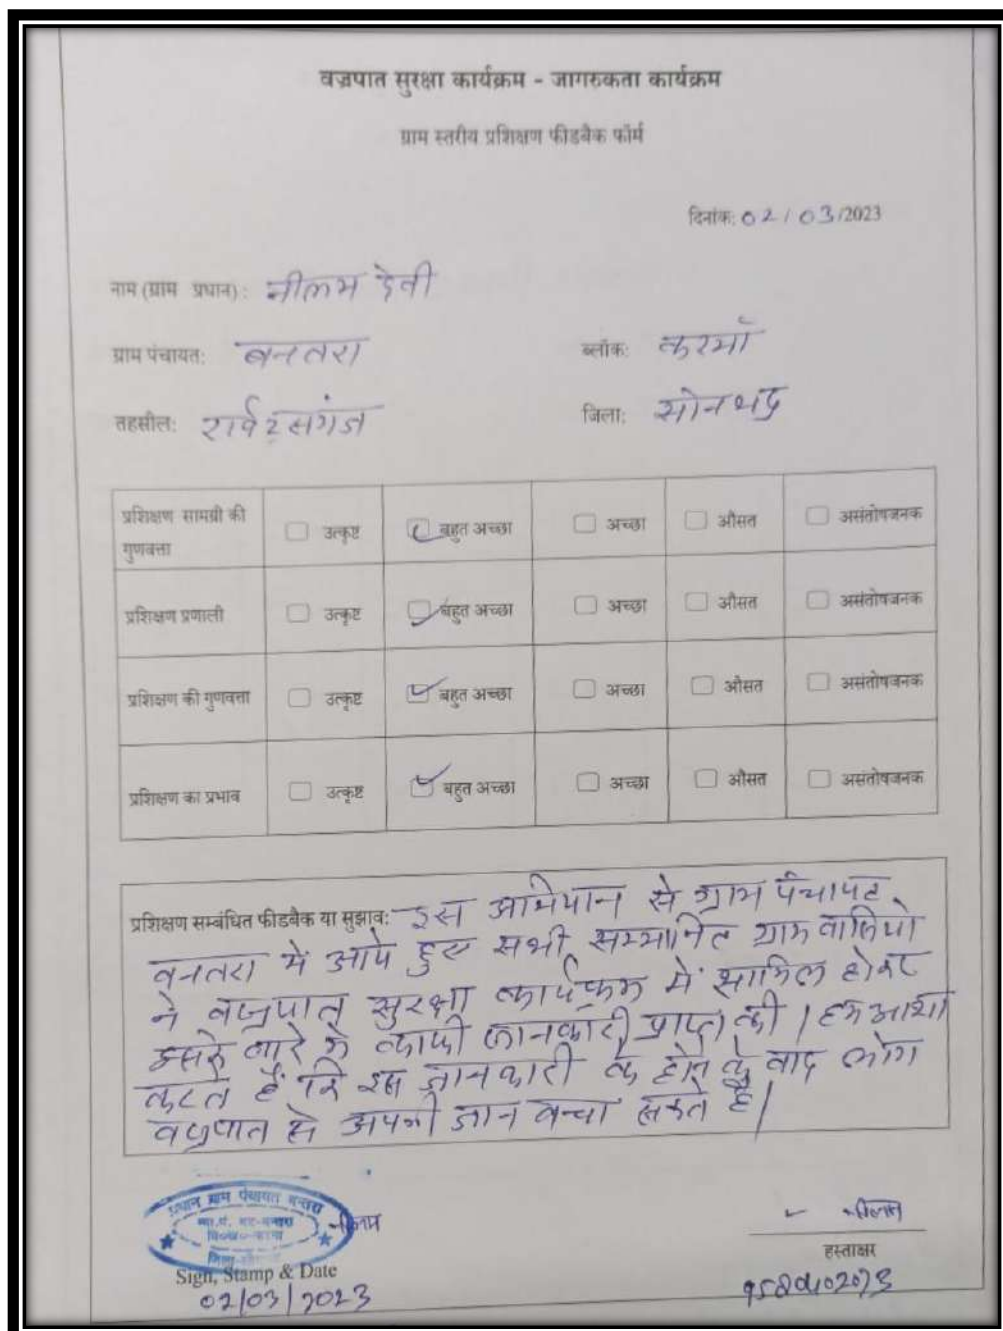 वज्रपात सुरक्षा कार्यक्रम - जागरुकता कार्यक्रम
ग्राम स्तरीय प्रशिक्षण फीडबैक फॉर्म
दिनांक: 02/03/2023
नाम (ग्राम प्रधान): नीलम देवी
ग्राम पंचायत: बनतरा ब्लॉक: करमाँ
तहसील: रार्वट्सगंज जिला: सोनभद्र
प्रशिक्षण सामग्री की गुणवत्ता उत्कृष्ट बहुत अच्छा अच्छा औसत असंतोषजनक
प्रशिक्षण प्रणाली उत्कृष्ट बहुत अच्छा अच्छा औसत असंतोषजनक
प्रशिक्षण की गुणवत्ता उत्कृष्ट बहुत अच्छा अच्छा औसत असंतोषजनक
प्रशिक्षण का प्रभाव उत्कृष्ट बहुत अच्छा अच्छा औसत असंतोषजनक
प्रशिक्षण सम्बंधित फीडबैक या सुझाव: इस अभियान से ग्राम पंचायत
बनतरा में आये हुए सभी सम्मानित ग्राम वासियो
ने वज्रपात सुरक्षा कार्यक्रम में शामिल होकर
इसके बारे में काफी जानकारी प्राप्त की। हम आशा
करते हैं कि इस जानकारी के होने के बाद लोग
वज्रपात से अपनी जान बचा सकते है।
प्रधान ग्राम पंचायत बन्तरा
नीलम
नीलम
हस्ताक्षर
Sign, Stamp & Date
02/03/2023